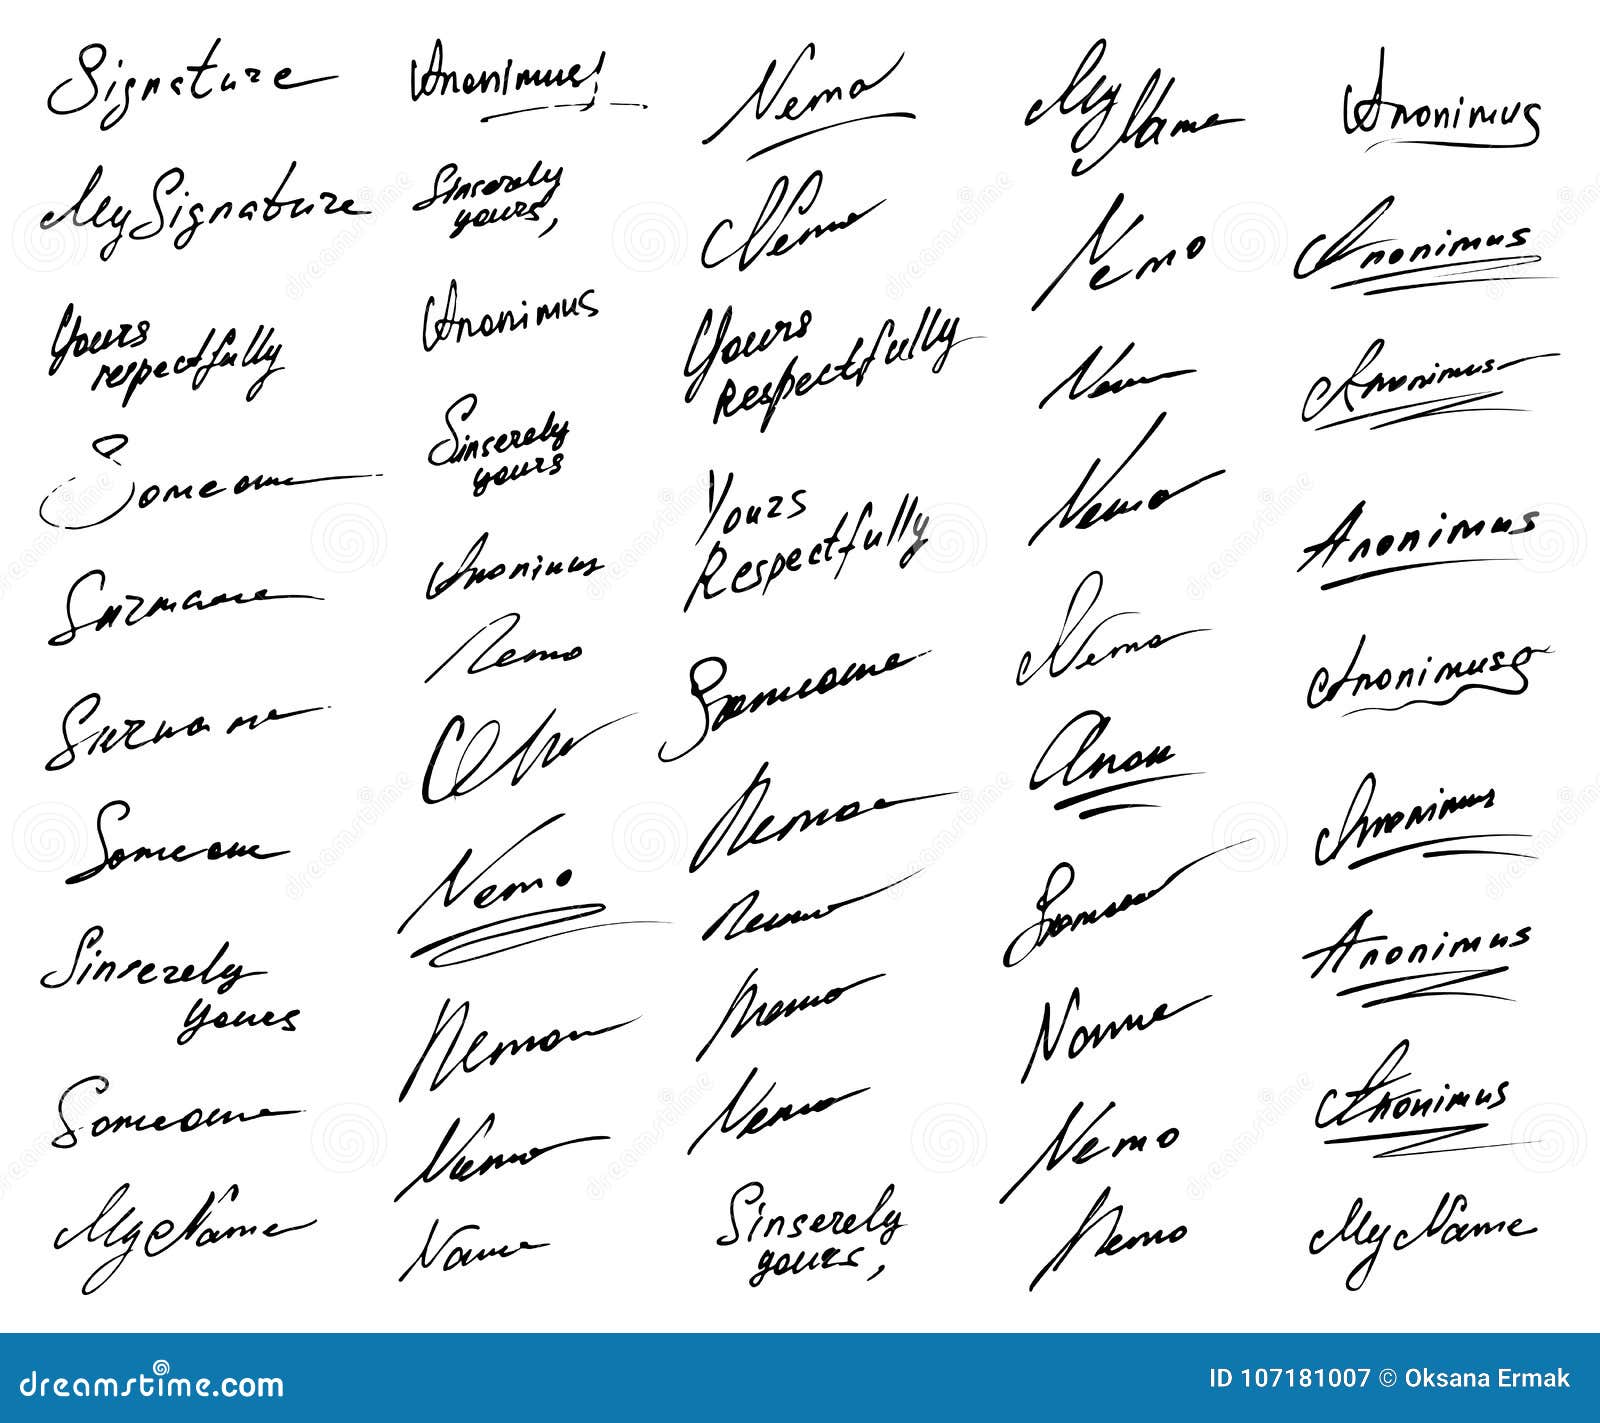 Signature
My Signature
Yours
respectfully
Someone
Surname
Surname
Someone
Sincerely
yours
Someone
My Name
Anonimus!
Sincerely
yours,
Anonimus
Sincerely
yours
Anonimus
Nemo
Nemo
Nemon
Nemo
Name
Nemo
Nemo
Yours
respectfully
Yours
Respectfully
Someone
Nemo
Nemo
Nemo
Nemo
Sincerely
yours,
My
Name
Nemo
Nemo
Nemo
Anon
Name
Nemo
Nemo
Anonimus
Anonimus
Anonimus
Anonimus
Anonimus
Anonimus
Anonimus
Anonimus
My Name
dreamstime.com
ID 107181007 © Oksana Ermak